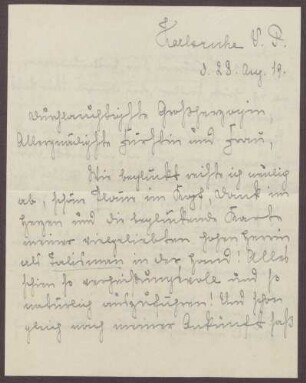 Karlsruhe i. B.
d. 28. Aug. 19.
Durchlauchtigste Großherzogin,
Allergnädigste Fürstin und Frau,
Wie beglückt reiste ich neulich
ab, schöne Pläne im Kopf, Dank im
Herzen und die beglückende Karte
meiner vielgeliebten hohen Herrin
als Talisman in der Hand! Alles
schien so verheißungsvoll und so
natürlich auszuführen! Und schon
gleich nach meiner Ankunft saß